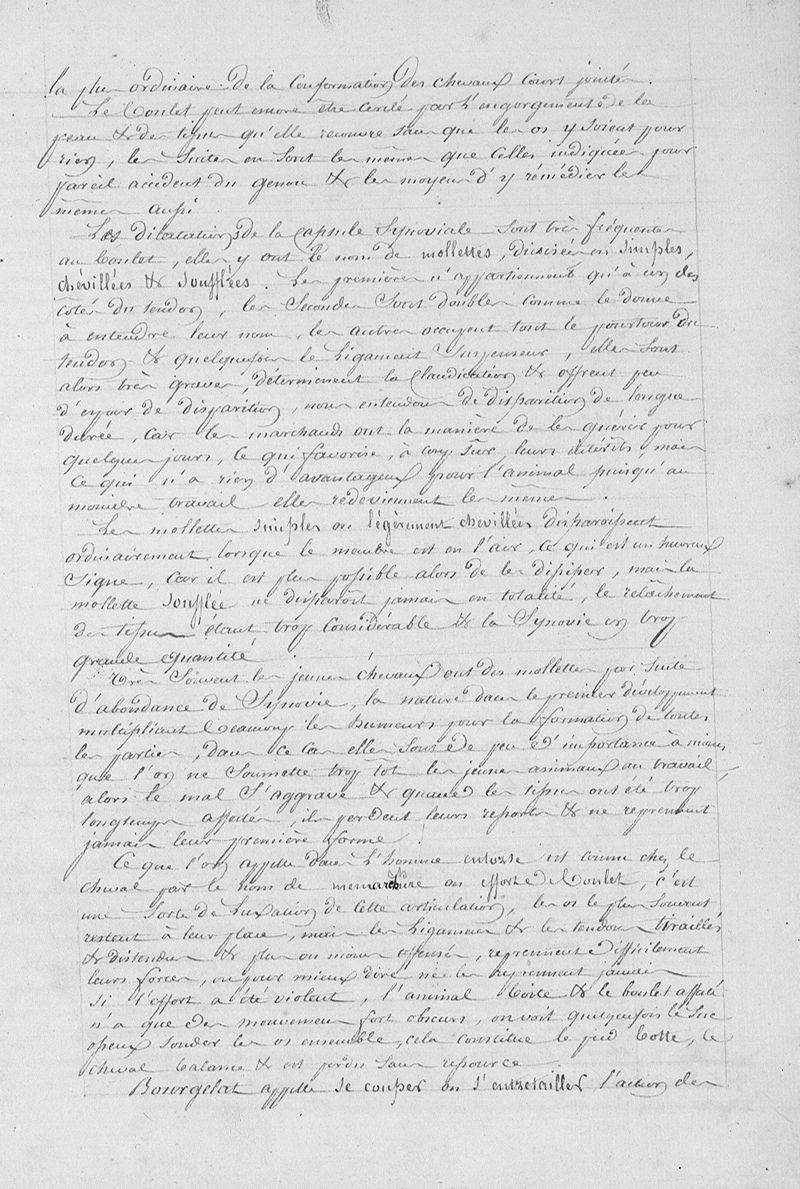 la plus ordinaire de la Conformation des chevaux court jointés.
Le Boulet peut encore être Cerclé par l'engorgement de la
peau & de tissus qu'elle recouvre sans que les os y soient pour
rien, les suites en sont les mêmes que celles indiquées pour
pareil accident du genou & les moyens d'y rémédier les
mêmes aussi
Les dilatations de la Capsule Synoviale sont très fréquentes
au Boulet, elles y ont le nom de mollettes, divisées en simples,
chevillées & soufflées. Les premières n'appartiennent qu'à un des
cotés du tendon, les Secondes sont doubles comme le donne
à entendre leur nom, les autres occupent tout le pourtour du
tendon & quelquefois le Ligament suspenseur, elles sont
alors très graves, déterminent la Claudication & offrent peu
d'espoir de disparition, nous entendons de disparition de longue
durée, Car les marchands ont la manière de les guérir pour
quelques jours, Ce qui favorise, à coup sûr, leurs intérêts, mais
Ce qui n'a rien d'avantageux pour l'animal puisqu'au
moindre travail elles redeviennent les mêmes.
Les mollettes simples ou légèrement chevillées disparaissent
ordinairement lorsque le membre est en l'air, Ce qui est un heureux
signe, Car il est plus possible alors de les dissiper, mais la
mollette soufflée ne disparoit jamais en totalité, le relâchement
des tissus étant trop considérable & la Synovie en trop
grande quantité.
Très Souvent les jeunes chevaux ont des mollettes par suite
d'abondance de Synovie, la nature dans le premier développement
multipliant beaucoup les humeurs pour la formation de toutes
les parties, dans ce Cas elles sont de peu d'importance à moins
que l'on ne Soumette trop tot les jeunes animaux au travail
alors le mal s'aggrave & quand les tissus ont été trop
longtemps affectés, ils perdent leurs ressorts & ne reprennent
jamais leur première forme.
Ce que l'on appelle dans l'homme entorse est connu chez le
cheval par le nom de memarchure ou effort de Boulet, c'est
une sorte de Luxation de cette articulation, les os le plus souvent
restent à leur place, mais les Ligamens & les tendons tiraillés
& distendus & plus ou moins offensés, reprennent difficilement
leurs forces, ou pour mieux dire ne les reprennent jamais
si l'effort a été violent, l'animal boite & le boulet affecté
n'a que des mouvemens fort obscurs, on voit quelquefois le suc
osseux souder les os ensemble, cela constitue le pied botte, le
cheval balance & est perdu sans ressource.
Bourgelat appelle se couper ou s'entretailler l'action des